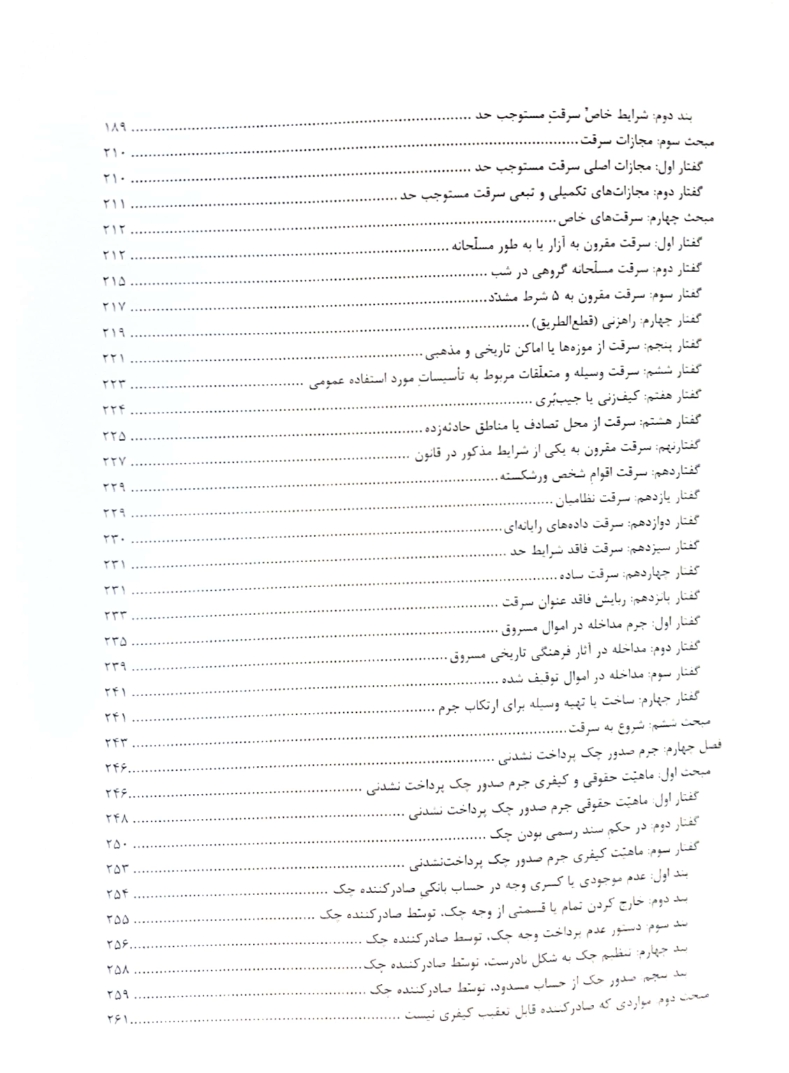 بند دوم: شرایط خاصّ سرقتِ مستوجب حد ........ ۱۸۹
مبحث سوم: مجازات سرقت ........ ۲۱۰
گفتار اول: مجازات اصلی سرقت مستوجب حد ........ ۲۱۰
گفتار دوم: مجازات‌های تکمیلی و تبعی سرقت مستوجب حد ........ ۲۱۱
مبحث چهارم: سرقت‌های خاص ........ ۲۱۲
گفتار اول: سرقت مقرون به آزار یا به طور مسلّحانه ........ ۲۱۲
گفتار دوم: سرقت مسلّحانه گروهی در شب ........ ۲۱۵
گفتار سوم: سرقت مقرون به ۵ شرط مشدّد ........ ۲۱۷
گفتار چهارم: راهزنی (قطع‌الطریق) ........ ۲۱۹
گفتار پنجم: سرقت از موزه‌ها یا اماکن تاریخی و مذهبی ........ ۲۲۱
گفتار ششم: سرقت وسیله و متعلّقات مربوط به تأسیساتِ مورد استفاده عمومی ........ ۲۲۳
گفتار هفتم: کیف‌زنی یا جیب‌بُری ........ ۲۲۴
گفتار هشتم: سرقت از محل تصادف یا مناطق حادثه‌زده ........ ۲۲۵
گفتارنهم: سرقت مقرون به یکی از شرایط مذکور در قانون ........ ۲۲۷
گفتاردهم: سرقت اقوامِ شخص ورشکسته ........ ۲۲۹
گفتار یازدهم: سرقت نظامیان ........ ۲۲۹
گفتار دوازدهم: سرقت داده‌های رایانه‌ای ........ ۲۳۰
گفتار سیزدهم: سرقت فاقد شرایط حد ........ ۲۳۱
گفتار چهاردهم: سرقت ساده ........ ۲۳۱
گفتار پانزدهم: ربایش فاقد عنوان سرقت ........ ۲۳۳
گفتار اول: جرم مداخله در اموال مسروق ........ ۲۳۵
گفتار دوم: مداخله در آثار فرهنگی تاریخی مسروق ........ ۲۳۹
گفتار سوم: مداخله در اموال توقیف شده ........ ۲۴۱
گفتار چهارم: ساخت یا تهیه وسیله برای ارتکاب جرم ........ ۲۴۱
مبحث ششم: شروع به سرقت ........ ۲۴۳
فصل چهارم: جرم صدور چک پرداخت نشدنی ........ ۲۴۶
مبحث اول: ماهیّت حقوقی و کیفری جرم صدور چک پرداخت نشدنی ........ ۲۴۶
گفتار اول: ماهیّت حقوقی جرم صدور چک پرداخت نشدنی ........ ۲۴۸
گفتار دوم: در حکم سند رسمی بودن چک ........ ۲۵۰
گفتار سوم: ماهیّت کیفری جرم صدور چک پرداخت‌نشدنی ........ ۲۵۳
بند اول: عدم موجودی یا کسری وجه در حساب بانکیِ صادرکننده چک ........ ۲۵۴
بند دوم: خارج کردن تمام یا قسمتی از وجه چک، توسّط صادرکننده چک ........ ۲۵۵
بند سوم: دستور عدم پرداخت وجه چک، توسط صادرکننده چک ........ ۲۵۶
بند چهارم: تنظیم چک به شکل نادرست، توسّط صادرکننده چک ........ ۲۵۸
بند پنجم: صدور چک از حساب مسدود، توسّط صادرکننده چک ........ ۲۵۹
مبحث دوم: مواردی که صادرکننده قابل تعقیب کیفری نیست ........ ۲۶۱